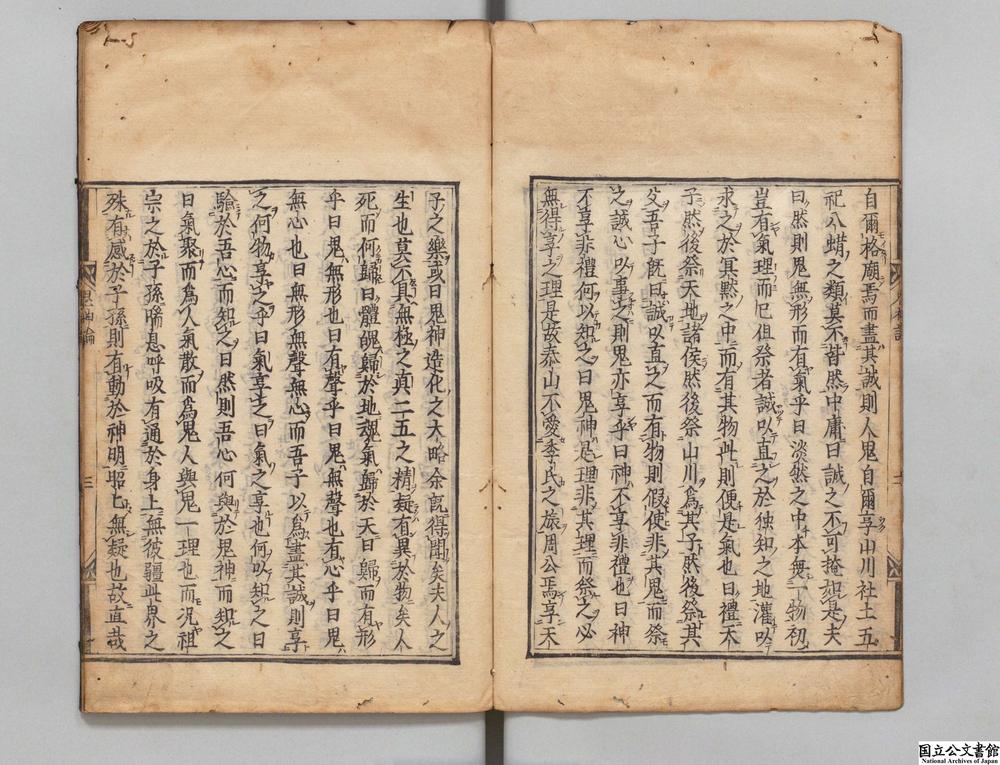 自爾格廟焉而盡其誠則人鬼自爾享山川社土五
祀八蜡之類莫不皆然中庸曰誠之不可掩如是夫
曰然則鬼無形而有氣乎曰淡然之中本無一物初
豈有氣理而已但祭者誠以直之於独知之地灌以
求之於冥黙之中而有其物此則便是氣也曰禮天
子然後祭天地諸侯然後祭山川為其子然後祭其
父吾子既曰誠以直之而有物則假使非其鬼而祭
之誠心以事之則鬼亦享乎曰神不享非禮也曰神
不享非禮何以知之曰鬼神是理非其理而祭之必
無得享之理是故泰山不受季氏之旅周公焉享天
子之樂或曰鬼神造化之大略余既得聞矣夫人之
生也莫不具無極之真二五之精疑有異於物矣人
死而何歸曰體魄歸於地魂氣歸於天曰歸而有形
乎曰鬼無形也曰有聲乎曰鬼無聲也有心乎曰鬼
無心也曰無形無聲無心而吾子以為盡其誠則享
之何物享之乎曰氣享之曰氣之享也何以知之曰
驗於吾心而知之曰然則吾心何與於鬼神而知之
曰氣聚而為人氣散而為鬼人與鬼一理也而況祖
宗之於子孫喘息呼吸有通於身上無彼疆此界之
殊有感於子孫則有動於神明昭匕無疑也故直哉
三
国立公文書館
National Archives of Japan